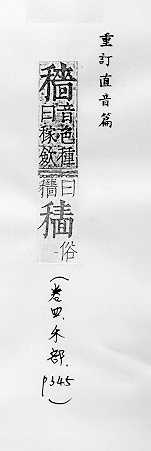 重訂直音篇
穡音色種
曰稼斂
曰穡
穑俗
(卷四.禾部.
p345)